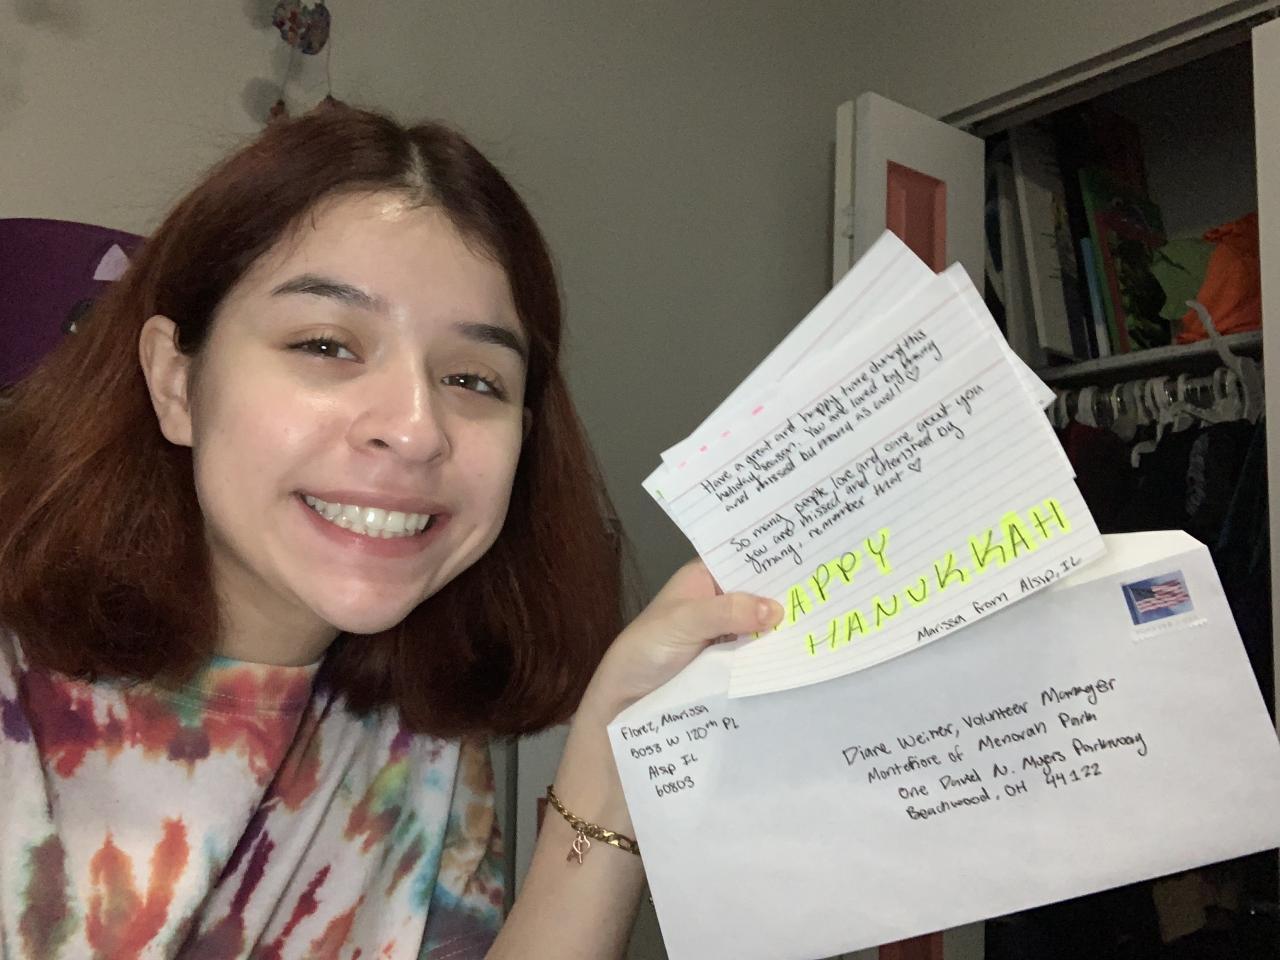 Have a great and happy time during this
holiday season. You are loved by many
and missed by many as well! ♡
So many people love and care about you
you are missed and cherished by
many, remember that ♡
HAPPY
HANUKKAH
Marissa from Alsip, IL
Florez, Marissa
W 120th PL
Alsip IL
60803
Diane Weiner, Volunteer Manager
Montefiore of Menorah Park
One David N. Myers Parkway
Beachwood, OH 44122